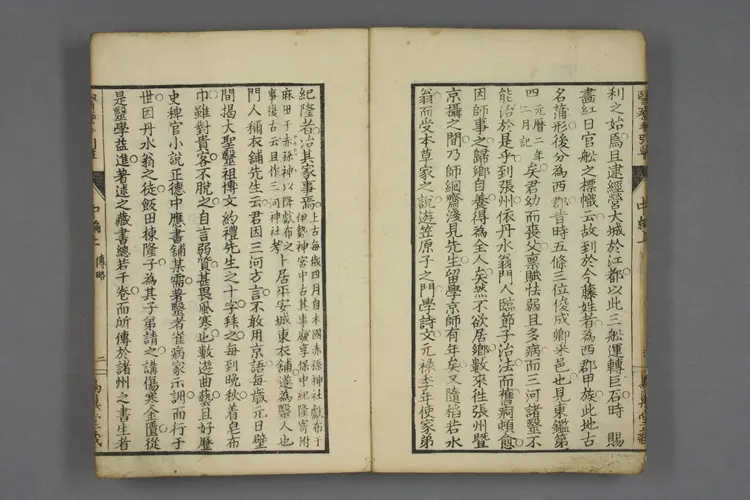 利之始焉且逮經營大城於江都以此三舩運轉巨石時　賜
畫紅日官舩之標幟云故到於今藤姓者為西郡甲族此地古
名蒲形後分為西郡昔時五條三位俊成卿米邑也見東鑑第
四元曆二年二月記矣君幼而喪父禀賦怯弱且多病而三河諸醫不
能治於是乎到張州依丹水翁門人臨節子治法而舊痾頓愈
因師事之歸鄉自養得為全人矣然不欲居鄉數來徃張州曁
京攝之間乃師絅齋淺見先生留學京師有年矣又隨稻若水
翁而受本草家之說遊笠原子之門學詩文元禄季年使家弟
紀隆者治其家事焉上古每歲四月自本國赤孫神社獻布于伊勢神宮中古其事廢享保中紀隆寄附
麻田于赤孫神以隆獻布之事復古云且作三河神社考卜居平安城東衣舖遂為醫人也
門人稱衣舖先生云君因三河方言不敢用京語每歲元日壁
間揭大聖醫祖傳文約禮先生之十字稱之每到晩秋着皂布
巾雖對貴客不脫之自言弱質甚畏風寒也數遊曲藝且好歷
史稗官小說正德中應書舖某需著醫者雀病家示訓而行于
世因丹水翁之徒飯田棟隆子為其子弟請之講傷寒金匱從
是醫學益進著述之藏書總若干卷而所傳於諸州之書生者
中編上
傳略
二